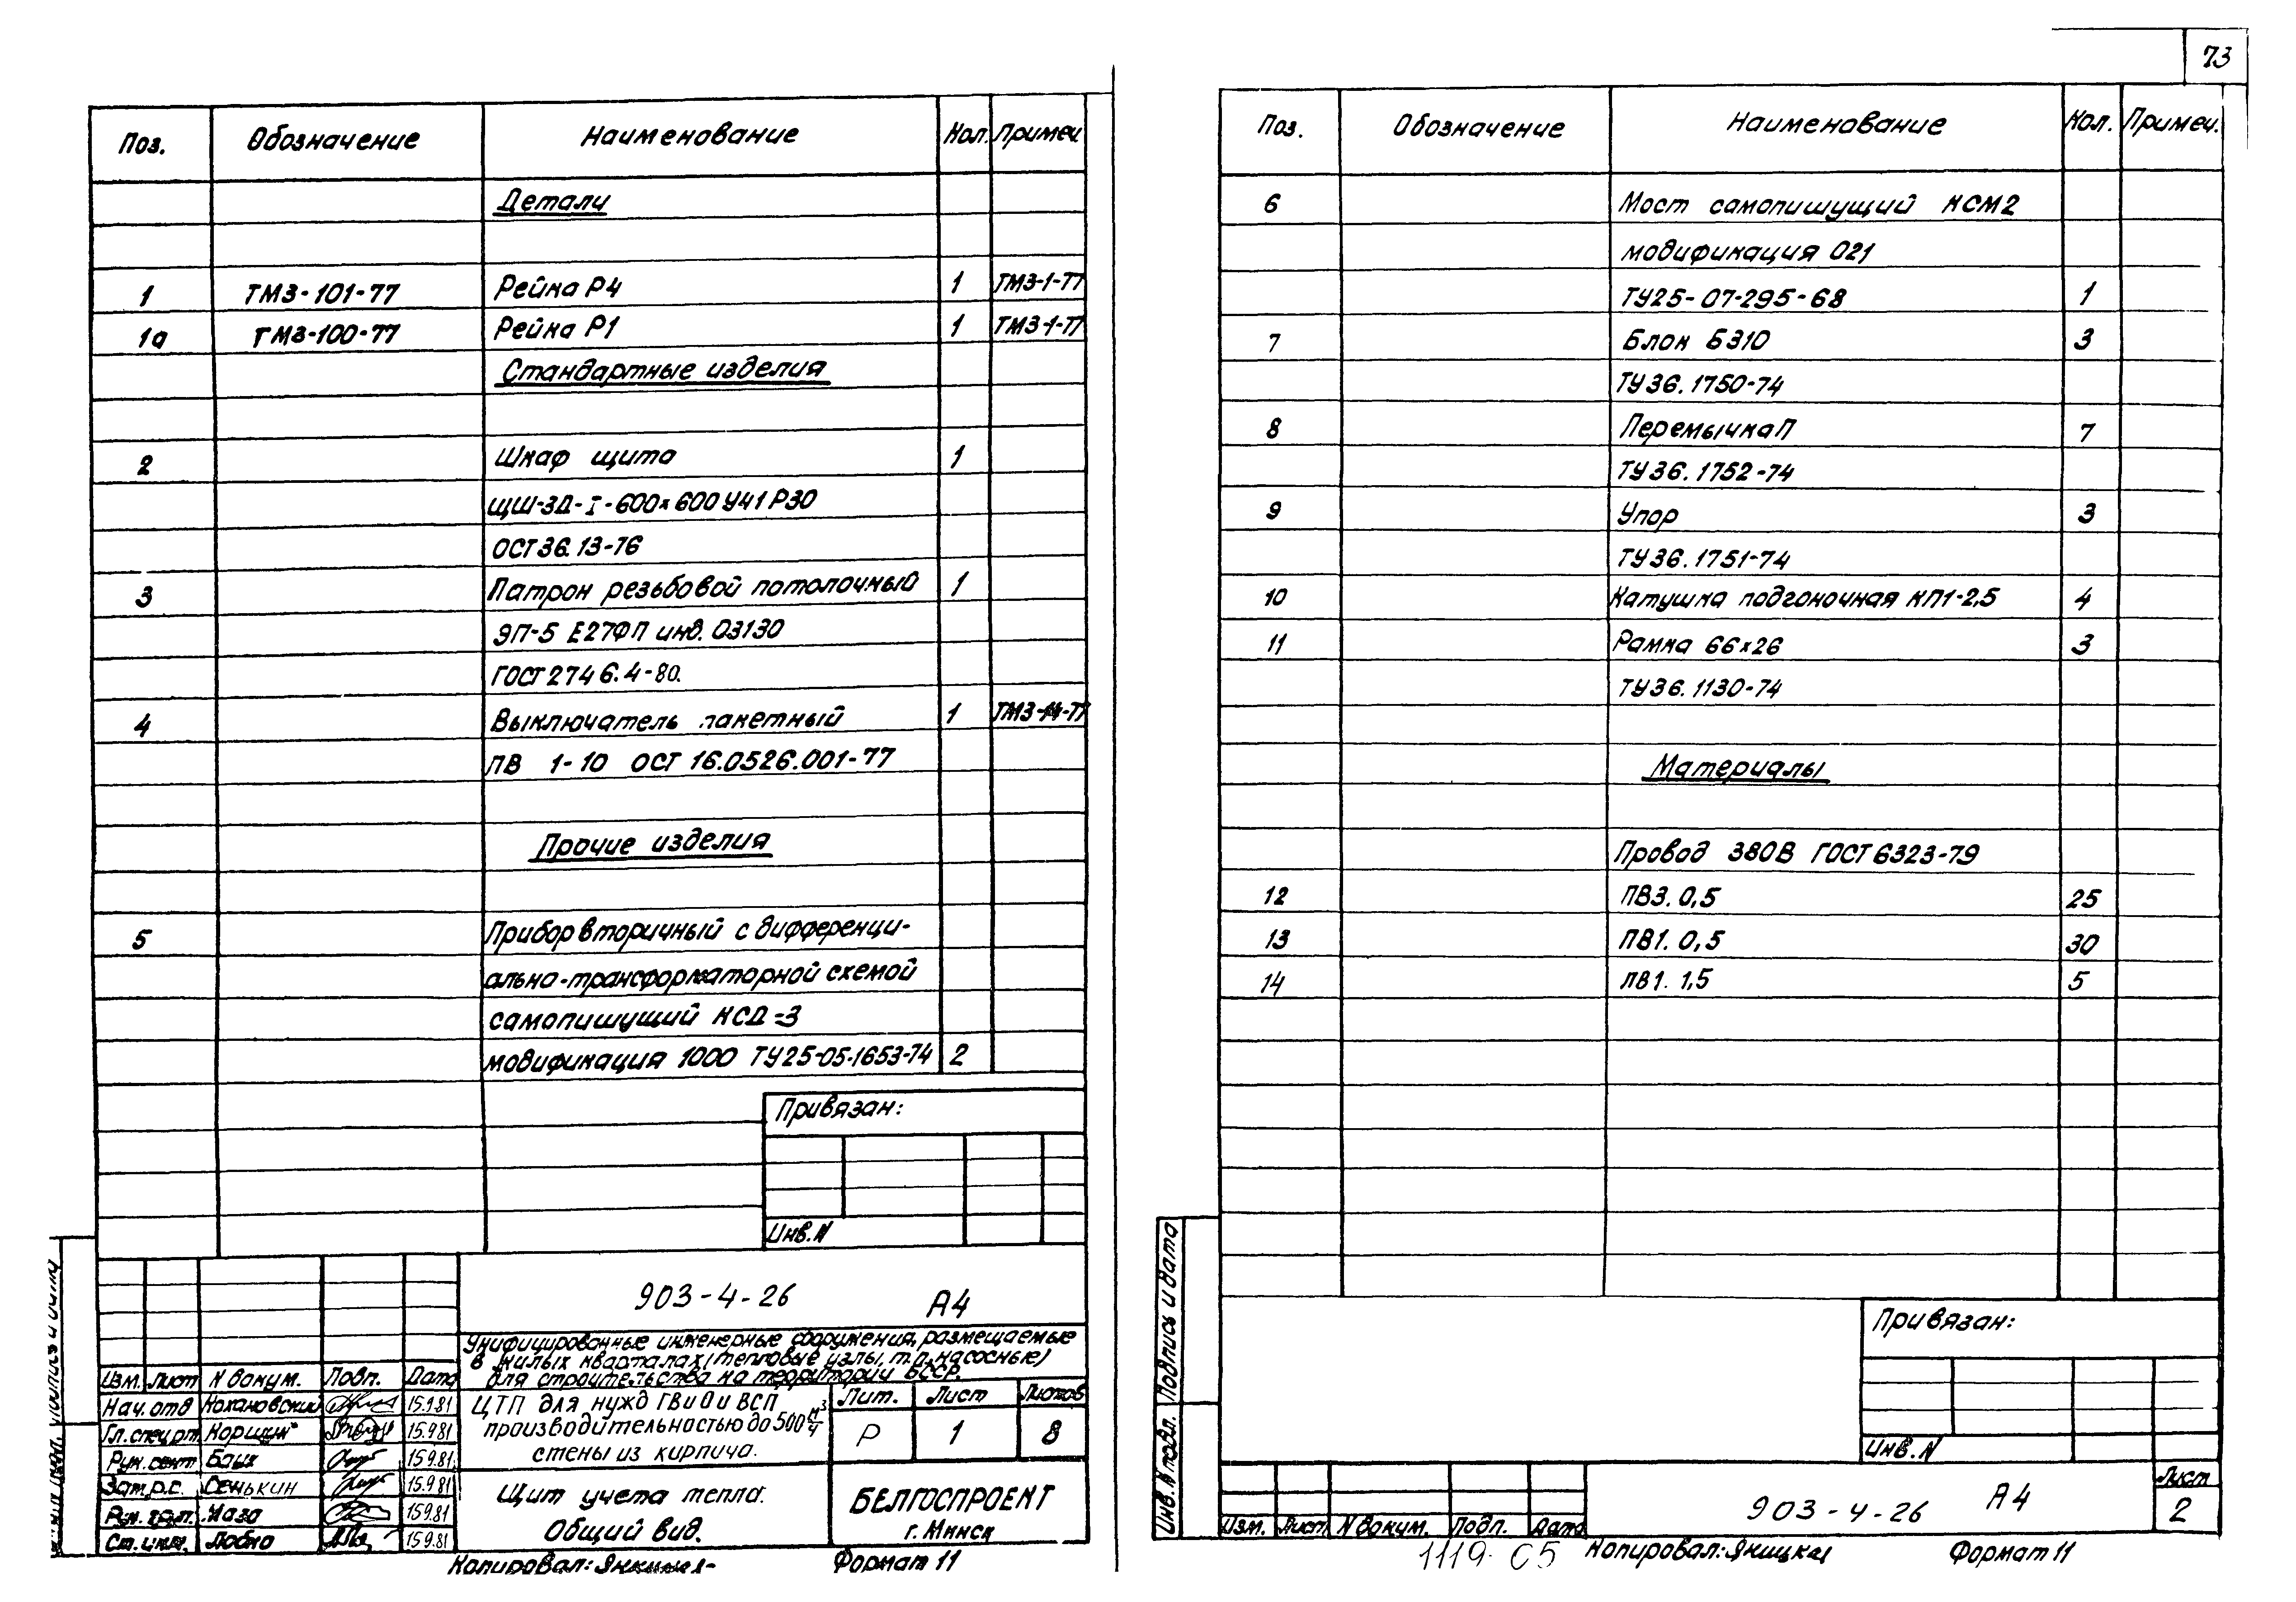 73
Поз. Обозначение Наименование Кол. Примеч
Детали
1 ТМ3-101-77 Рейка Р4 1 ТМ3-1-77
1а ТМ3-100-77 Рейка Р1 1 ТМ3-1-77
Стандартные изделия
2 Шкаф щита 1
ЩШ-ЗД-I-600х600 У41 Р30
ОСТ 36.13-76
3 Патрон резьбовой потолочный 1
ЭП-5 Е27ФП инв. 03130
ГОСТ 2746.4-80.
4 Выключатель пакетный 1 ТМ3-14-77
ПВ 1-10 ОСТ 16.0526.001-77
Прочие изделия
5 Прибор вторичный с дифференци-
ально-трансформаторной схемой
самопишущий КСД-3
модификация 1000 ТУ25-05-1653-74 2
Привязан:
Инв.N
903-4-26 А4
Унифицированные инженерные сооружения, размещаемые
в жилых кварталах (тепловые узлы, т.п. насосные)
для строительства на территории БССР.
Изм. Лист N докум. Подп. Дата
Нач. отд Колановский 15.9.81
Гл. спец рт Коршун 15.9.81
Рук. сект 15.9.81
Зам.р.с. Сенькин 15.9.81
Рук. гр. 15.9.81
Ст. инж. Лобко 15.9.81
ЦТП для нужд ГВ и О и ВСП
производительностью до 500 м³/ч
стены из кирпича.
Лит. Лист Листов
Р 1 8
Щит учета тепла.
Общий вид.
БЕЛГОСПРОЕКТ
г. Минск
Копировал: Формат 11
Поз. Обозначение Наименование Кол. Примеч.
6 Мост самопишущий КСМ2
модификация 021
ТУ25-07-295-68 1
7 Блок Б310 3
ТУ36.1750-74
8 Перемычка П 7
ТУ36.1752-74
9 Упор 3
ТУ36.1751-74
10 Катушка подгоночная КП1-2,5 4
11 Рамка 66х26 3
ТУ36.1130-74
Материалы
Провод 380В ГОСТ 6323-79
12 ПВ3. 0,5 25
13 ПВ1. 0,5 30
14 ПВ1. 1,5 5
Привязан:
Инв. N
Подпись и дата
Инв. N подл.
Изм. Лист N докум. Подп. Дата
903-4-26 А4
Лист
2
1119-05 Копировал: Формат 11